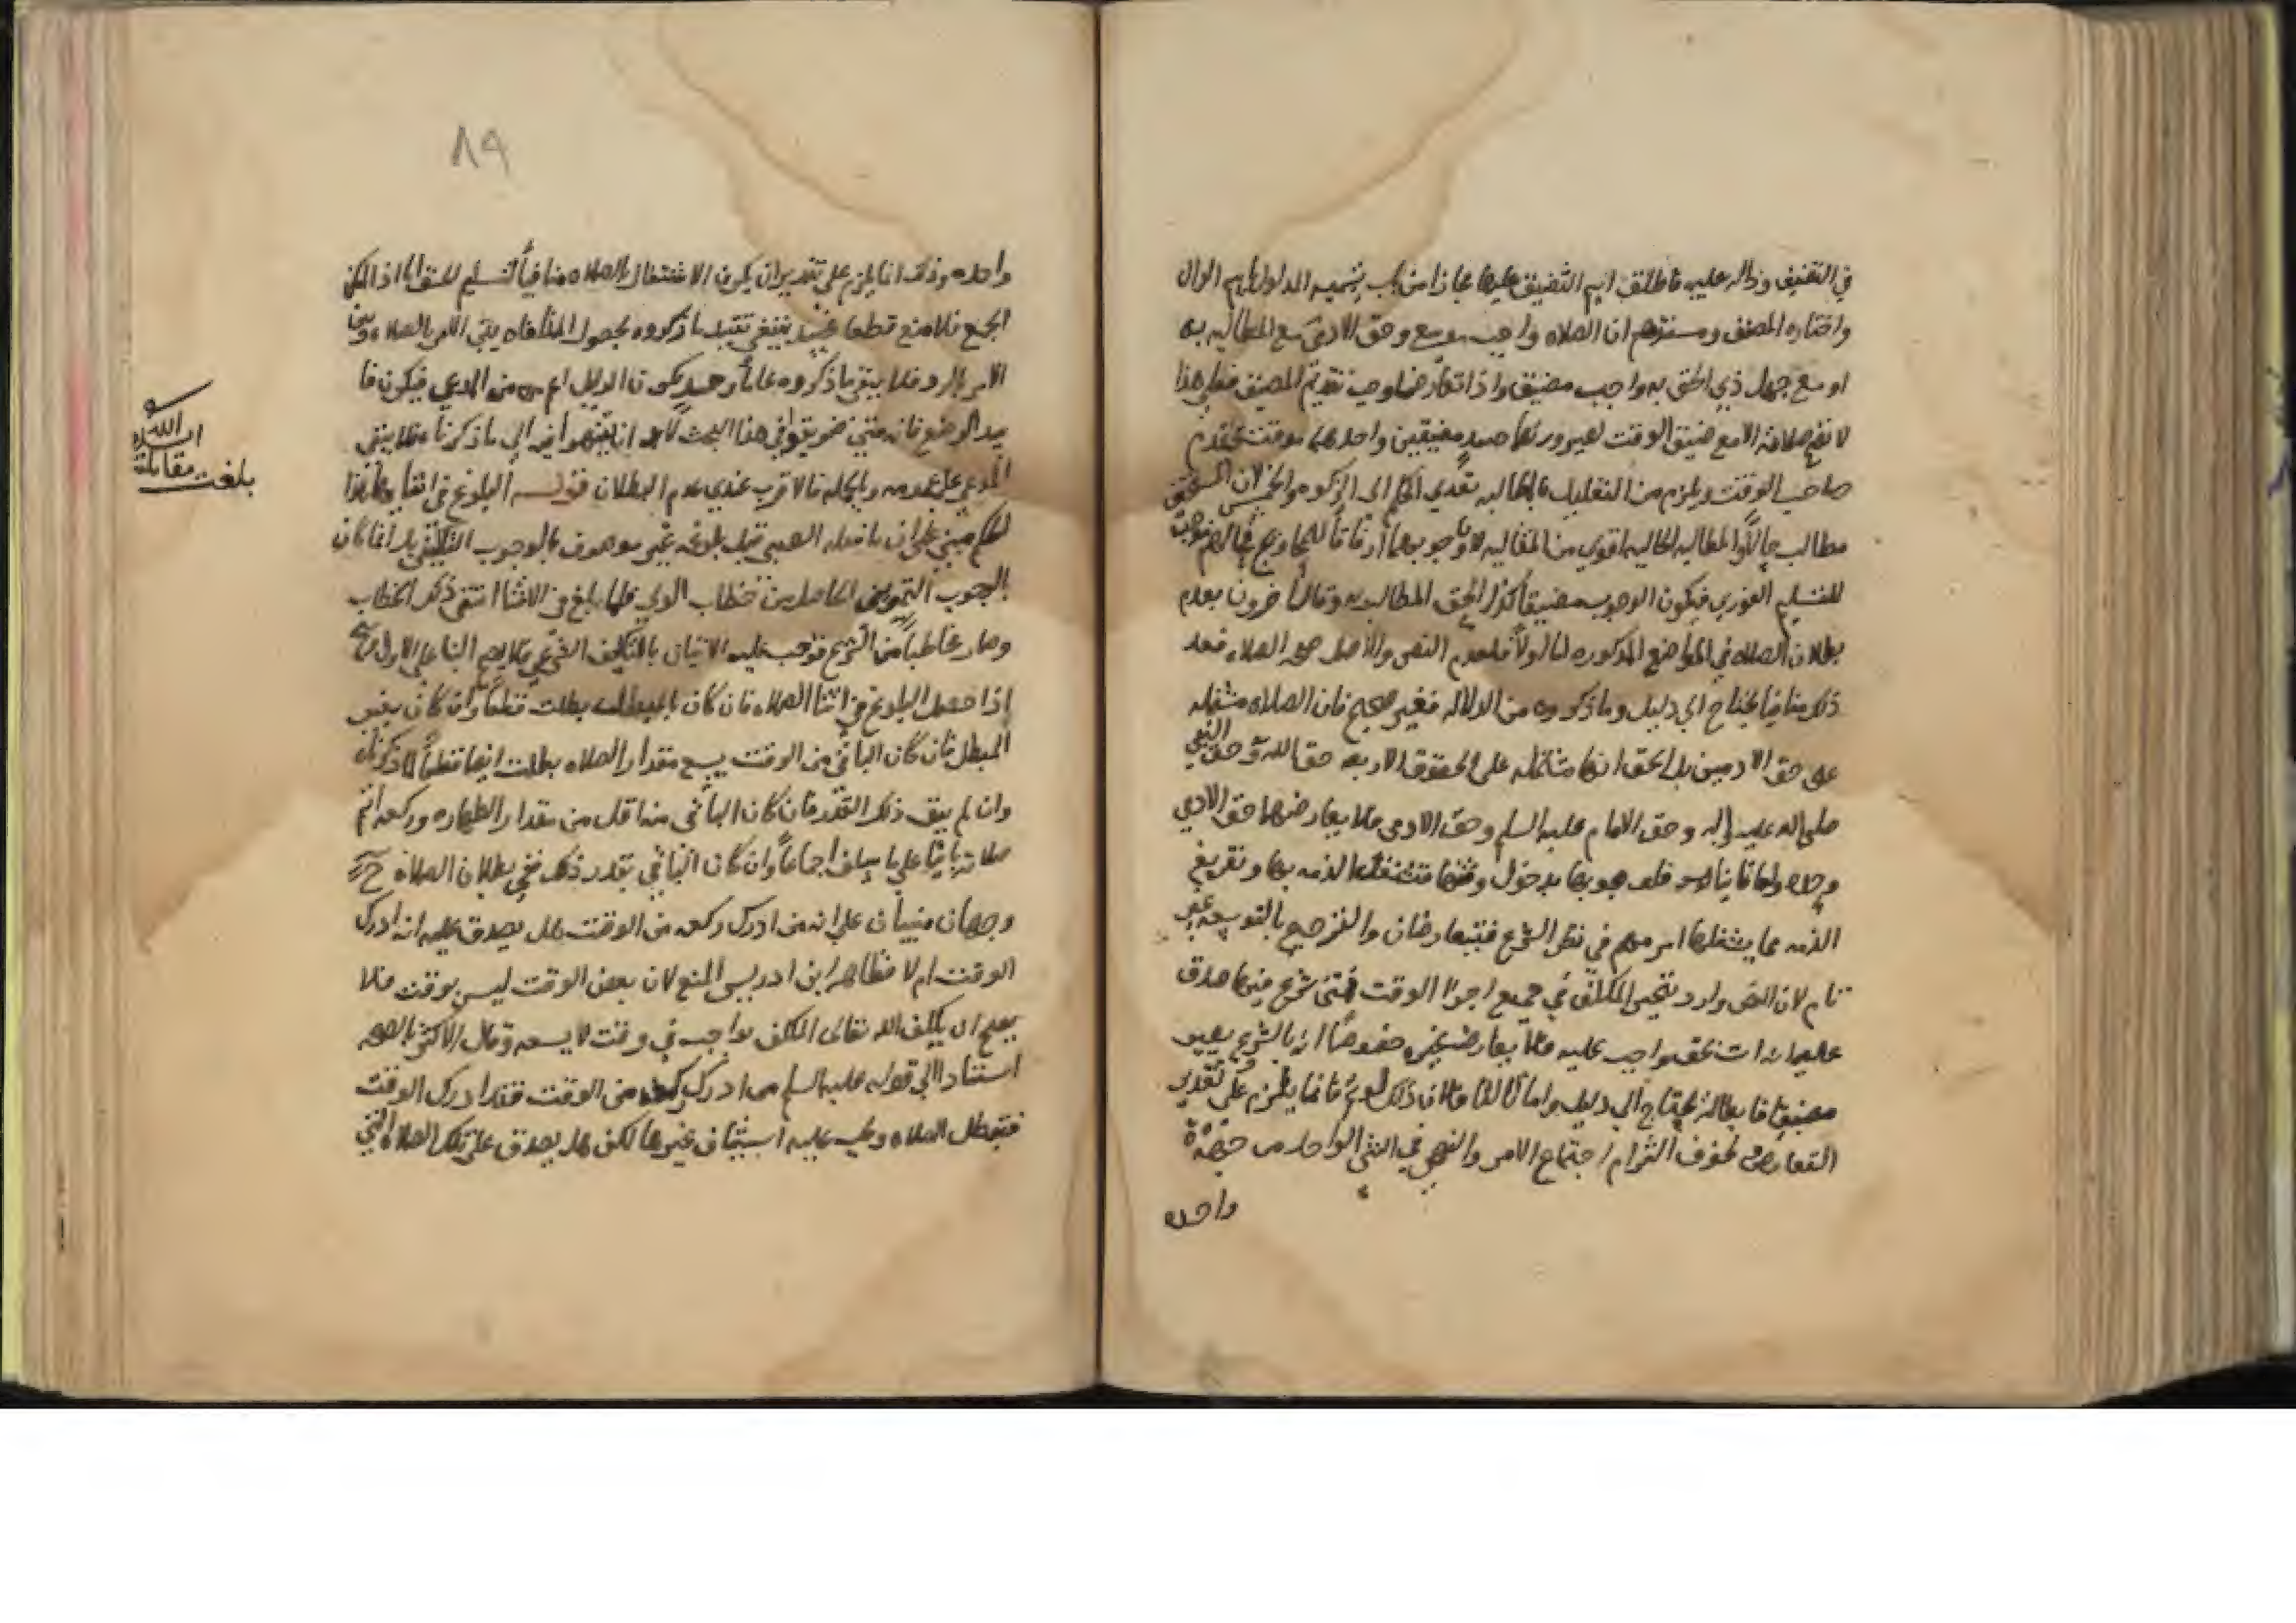 في التضيق ودالة عليه فاطلق اسم التضييق عليها مجازا من باب تسميه المدلول باسم الدال
واختاره المصنف ومستندهم ان الصلاه واجب موسع وحق الادمي مع المطالبه به
او مع جهل ذي الحق به واجب مضيق واذا تعارضا وجب تقديم المضيق فعلى هذا
لا تصح صلاته الا مع ضيق الوقت لصيرورتهما حينئذ مضيقين واحدهما موقت فيقدم
صاحب الوقت ويلزم من التعليل بالمطالبه تعدي الحكم الى الزكوه والخمس لان المستحق
مطالب حالا والمطالبه الحاليه اقوى من المقاليه
للتسليم الفوري فيكون الوجوب مضيقا كذي الحق المطالب به وقال اخرون بعدم
بطلان الصلاه في المواضع المذكوره لنا اولا فلعدم النص والاصل صحه الصلاه فعد
ذلك منافيا يحتاج الى دليل وما ذكروه من الدلاله فغير صحيح فان الصلاه مشتمله
على حق الادميين بل الحق انها مشتمله على الحقوق الاربعه حق الله وحق النبي
صلى الله عليه واله وحق الامام عليه السلم وحق الادمي فلا يعارضها حق الادمي
وحده واما ثانيا فلوجوبها بدخول وقتها فتشتغل الذمه بها وتفريغ
الذمه مما يشغلها امر مهم في نظر الشرع فيتعارضان والترجيح بالتوسعه غير
تام لان النص وارد بتخيير المكلف في جميع اجزا الوقت فمتى شرع فيها صدق
عليه انه ات بحق واجب عليه فلا يعارضه غيره خصوصا انه بالشرع يصير
مضيقا فابطاله يحتاج الى دليل واما ثالثا فلان ذلك لو تم فانما يلزم على تقدير
التعارض لخوف التزام اجتماع الامر والنهي في الشي الواحد من جهة
واحده
٨٩
واحده وذلك انما يلزم على تقدير ان يكون الاشتغال بالصلاه منافيا لتسليم الحق اما اذا امكن
الجمع فلا منع قطعا فحينئذ ينبغي تقييد ما ذكروه بحصول المنافاه
الامر بالرد فلا يبقى ما ذكروه عاما وحينئذ يكون الدليل اعم من المدعي فيكون فا
سد الوضع فانه متى ضويقوا في هذا البحث لا بد ان ينتهوا فيه الى ما ذكرناه فلا يبقى
المدعي على عمومه وبالجمله فالاقرب عندي عدم البطلان قوله البلوغ في اثنائها هذا
الحكم مبني على ان ما فعله الصبي قبل بلوغه غير موصوف بالوجوب التكليفي بل انما كان
بالوجوب التمريني الحاصل من خطاب الولي فلما بلغ في الاثنا انتفى ذلك الخطاب
وصار مخاطبا من الشرع فوجب عليه الاتيان بالتكليف الشرعي فلا يصح البنا على الاول
اذا حصل البلوغ في اثنا الصلاه فان كان بالمبطل بطلت قطعا وان كان بغير
المبطل فان كان الباقي من الوقت يسع مقدار الصلاه بطلت ايضا قطعا لما ذكرناه
وان لم يبق ذلك القدر فان كان الباقي منه اقل من مقدار الطهاره وركعه اتم
صلاته بانيا على ما سلف اجماعا وان كان الباقي بقدر ذلك ففي بطلان الصلاه ح
وجهان مبنيان على انه من ادرك ركعه من الوقت هل يصدق عليه انه ادرك
الوقت ام لا فظاهر ابن ادريس المنع لان بعض الوقت ليس بوقت فلا
يصح ان يكلف الله تعالى المكلف بواجب في وقت لا يسعه وقال الاكثر بالصحه
استنادا الى قوله عليه السلم من ادرك ركعه من الوقت فقد ادرك الوقت
فتبطل الصلاه ويجب عليه استيناف غيرها لكن هل يصدق على تلك الصلاه التي
بلغت مقابلة